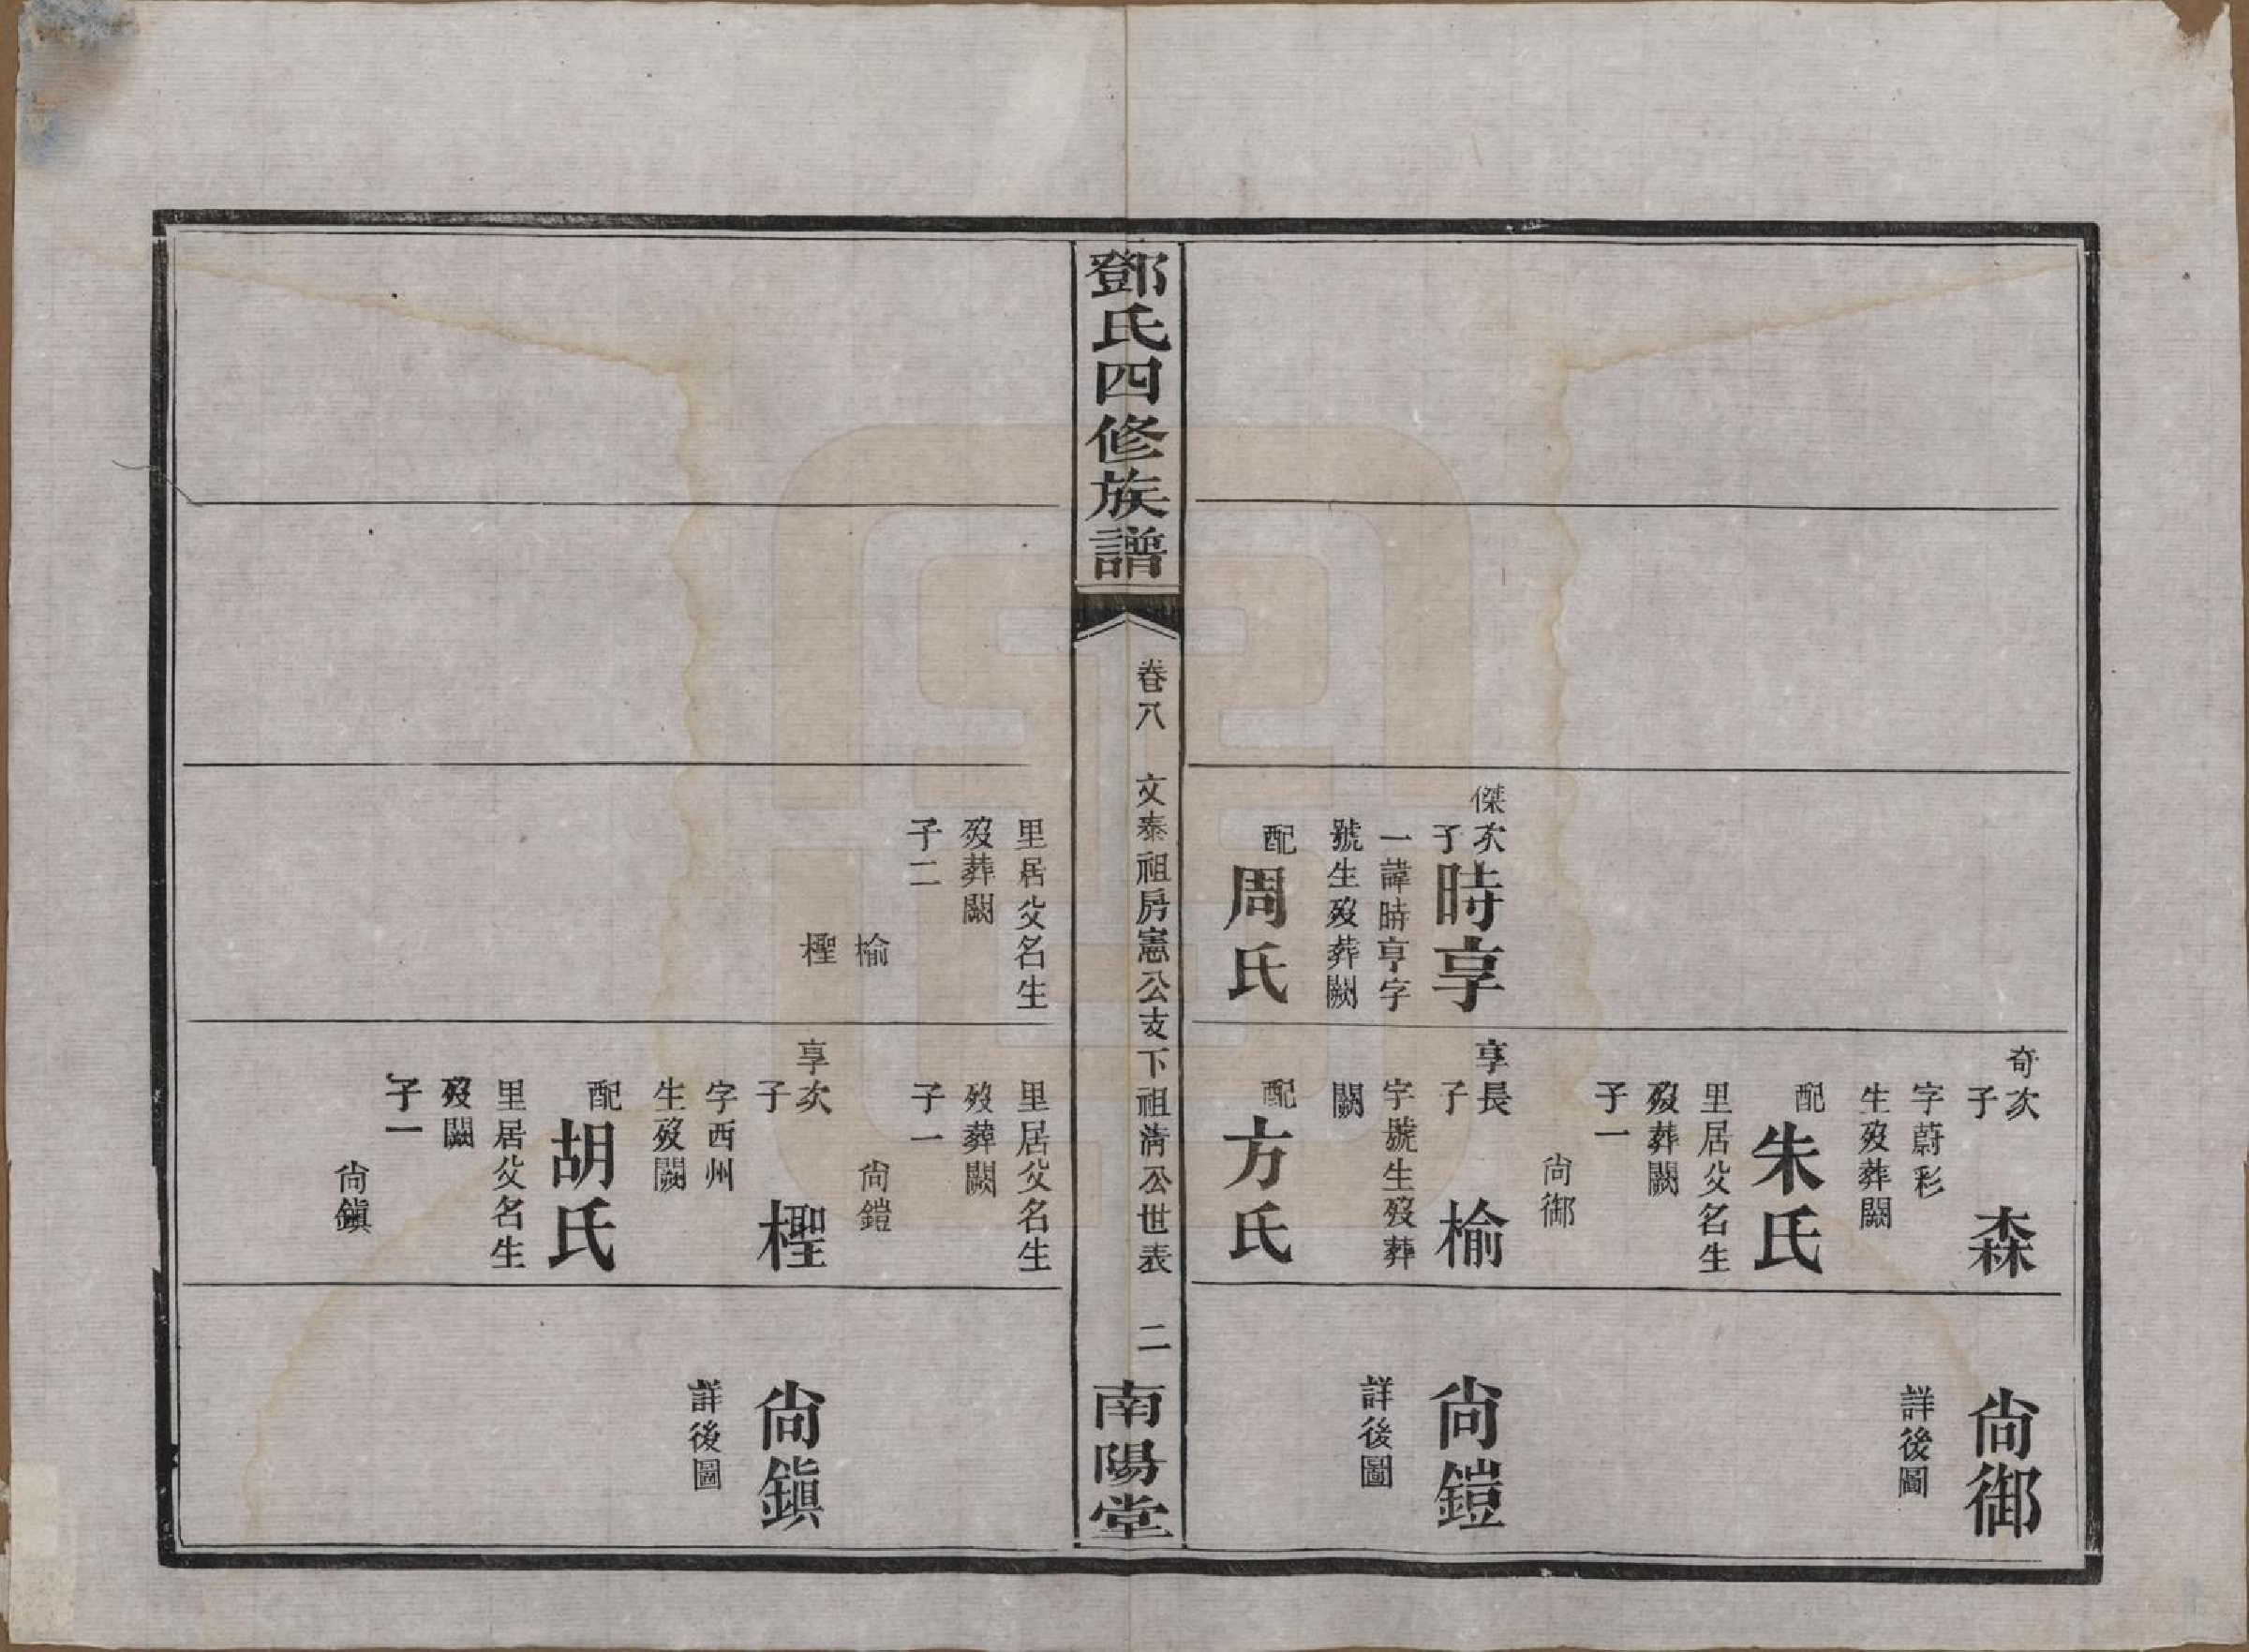 傑次子時享
一諱時亨字
號生歿葬闕
配周氏
奇次子森
字蔚彩
生歿葬闕
配朱氏
里居父名生
歿葬闕
子一
尙御
享長子榆
字號生歿葬
闕
配方氏
尙御
詳後圖
尙鎧
詳後圖
鄧氏四修族譜
卷八
文泰祖房憲公支下祖淸公世表
二
南陽堂
里居父名生
歿葬闕
子二
榆
檉
里居父名生
歿葬闕
子一
尙鎧
享次子檉
字西州
生歿闕
配胡氏
里居父名生
歿闕
子一
尙鎭
尙鎭
詳後圖